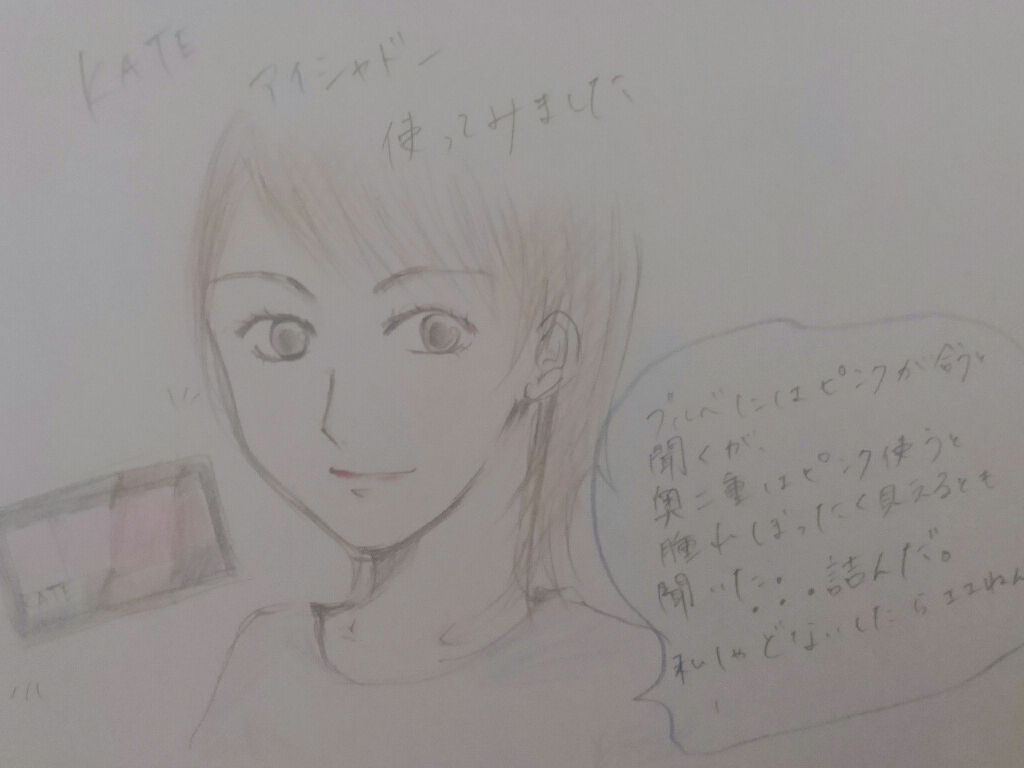 KATE
アイシャドー
使ってみました
ブルべにはピンクが合うと
聞くが、
奥二重はピンク使うと
腫れぼったく見えるとも
聞いた。・・・詰んだ。
私しゃどないしたらええねん